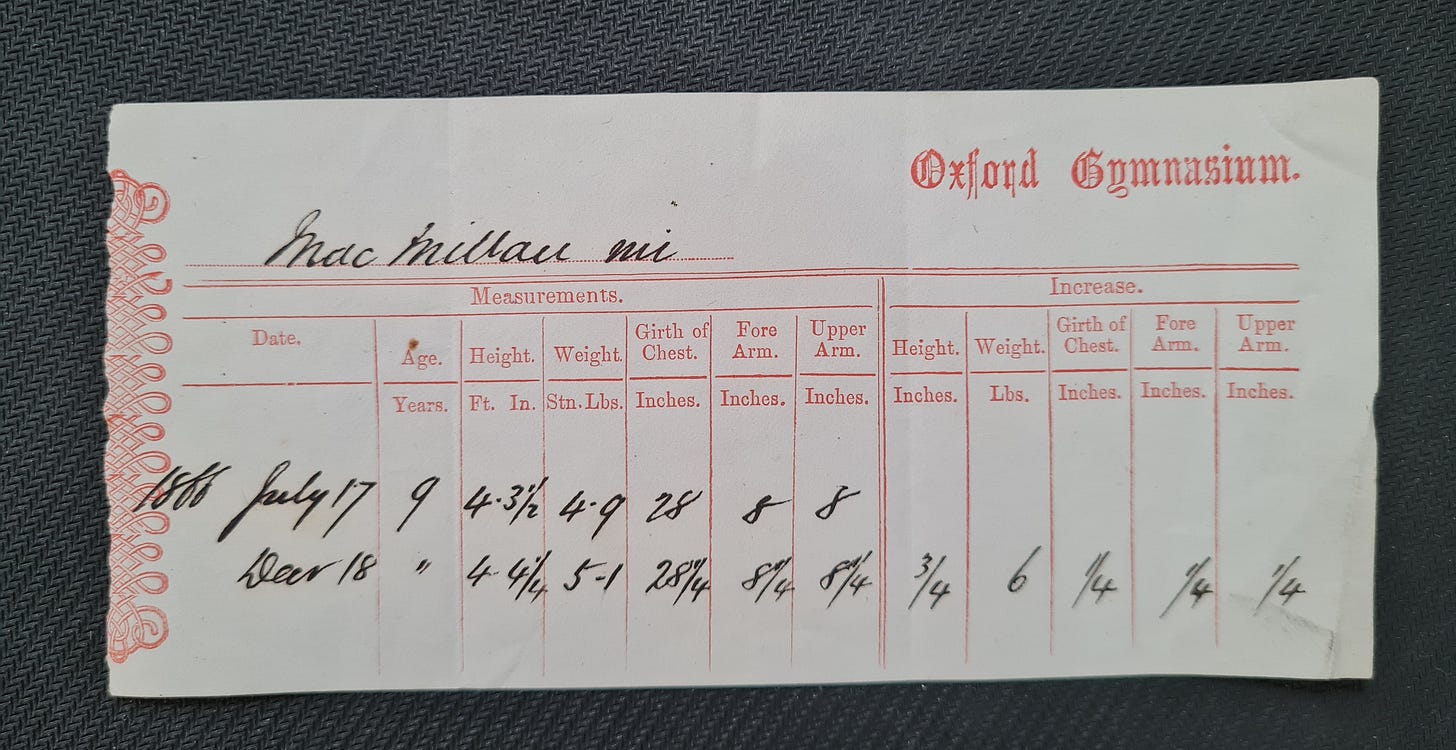 Oxford Gymnasium.
Mac Millan mi
Measurements. Increase.
Date. Age. Height. Weight. Girth of Chest. Fore Arm. Upper Arm. Height. Weight. Girth of Chest. Fore Arm. Upper Arm.
Years. Ft. In. Stn. Lbs. Inches. Inches. Inches. Inches. Lbs. Inches. Inches. Inches.
1866 July 17 9 4·3½ 4·9 28 8 8
Decr 18 " 4·4¼ 5-1 28¼ 8¼ 8¼ ¾ 6 ¼ ¼ ¼